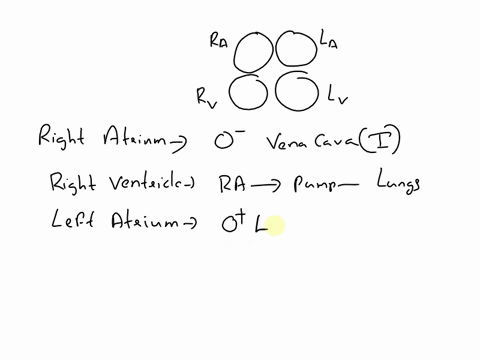 RA LA
RV LV
Right Atrium → O⁻ Vena Cava (I)
Right Ventricle → RA → Pump — Lungs
Left Atrium → O⁺ L